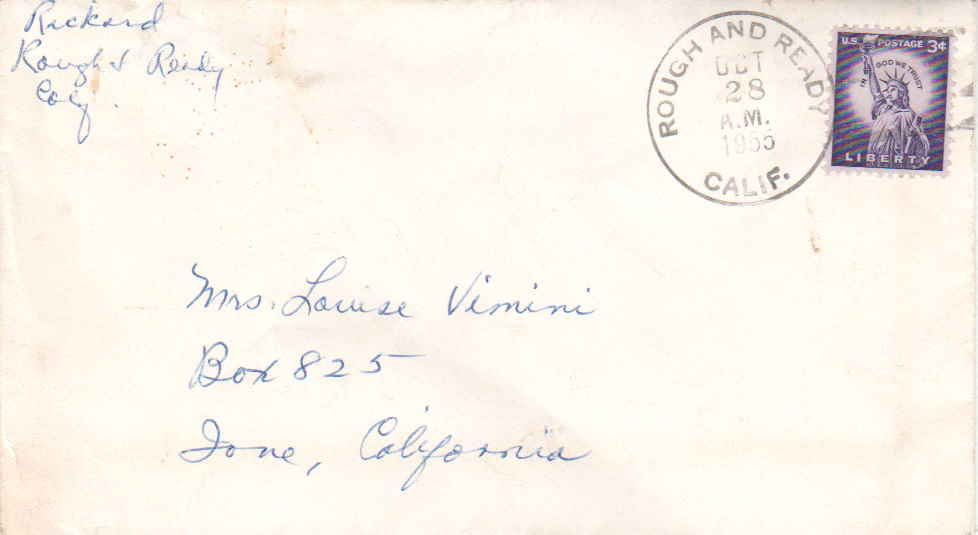 Rickard
Rough & Ready
Calif
ROUGH AND READY
OCT
28
A.M.
1955
CALIF.
U.S. POSTAGE 3¢
IN GOD WE TRUST
LIBERTY
Mrs. Louise Vimini
Box 825
Ione, California